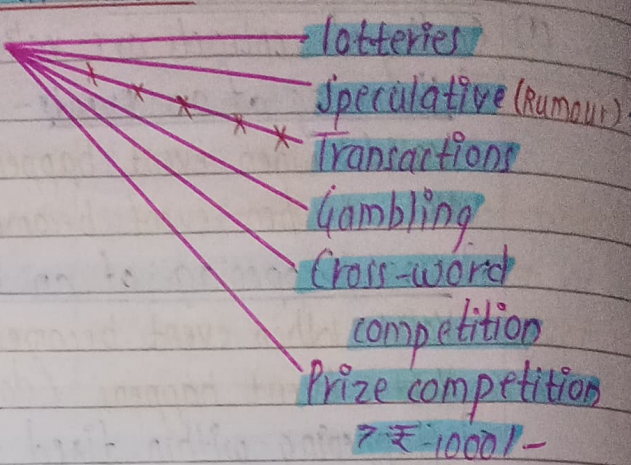 lotteries
Speculative (Rumour)
Transactions
Gambling
Cross-word
competition
Prize competition
> ₹ 1000/-